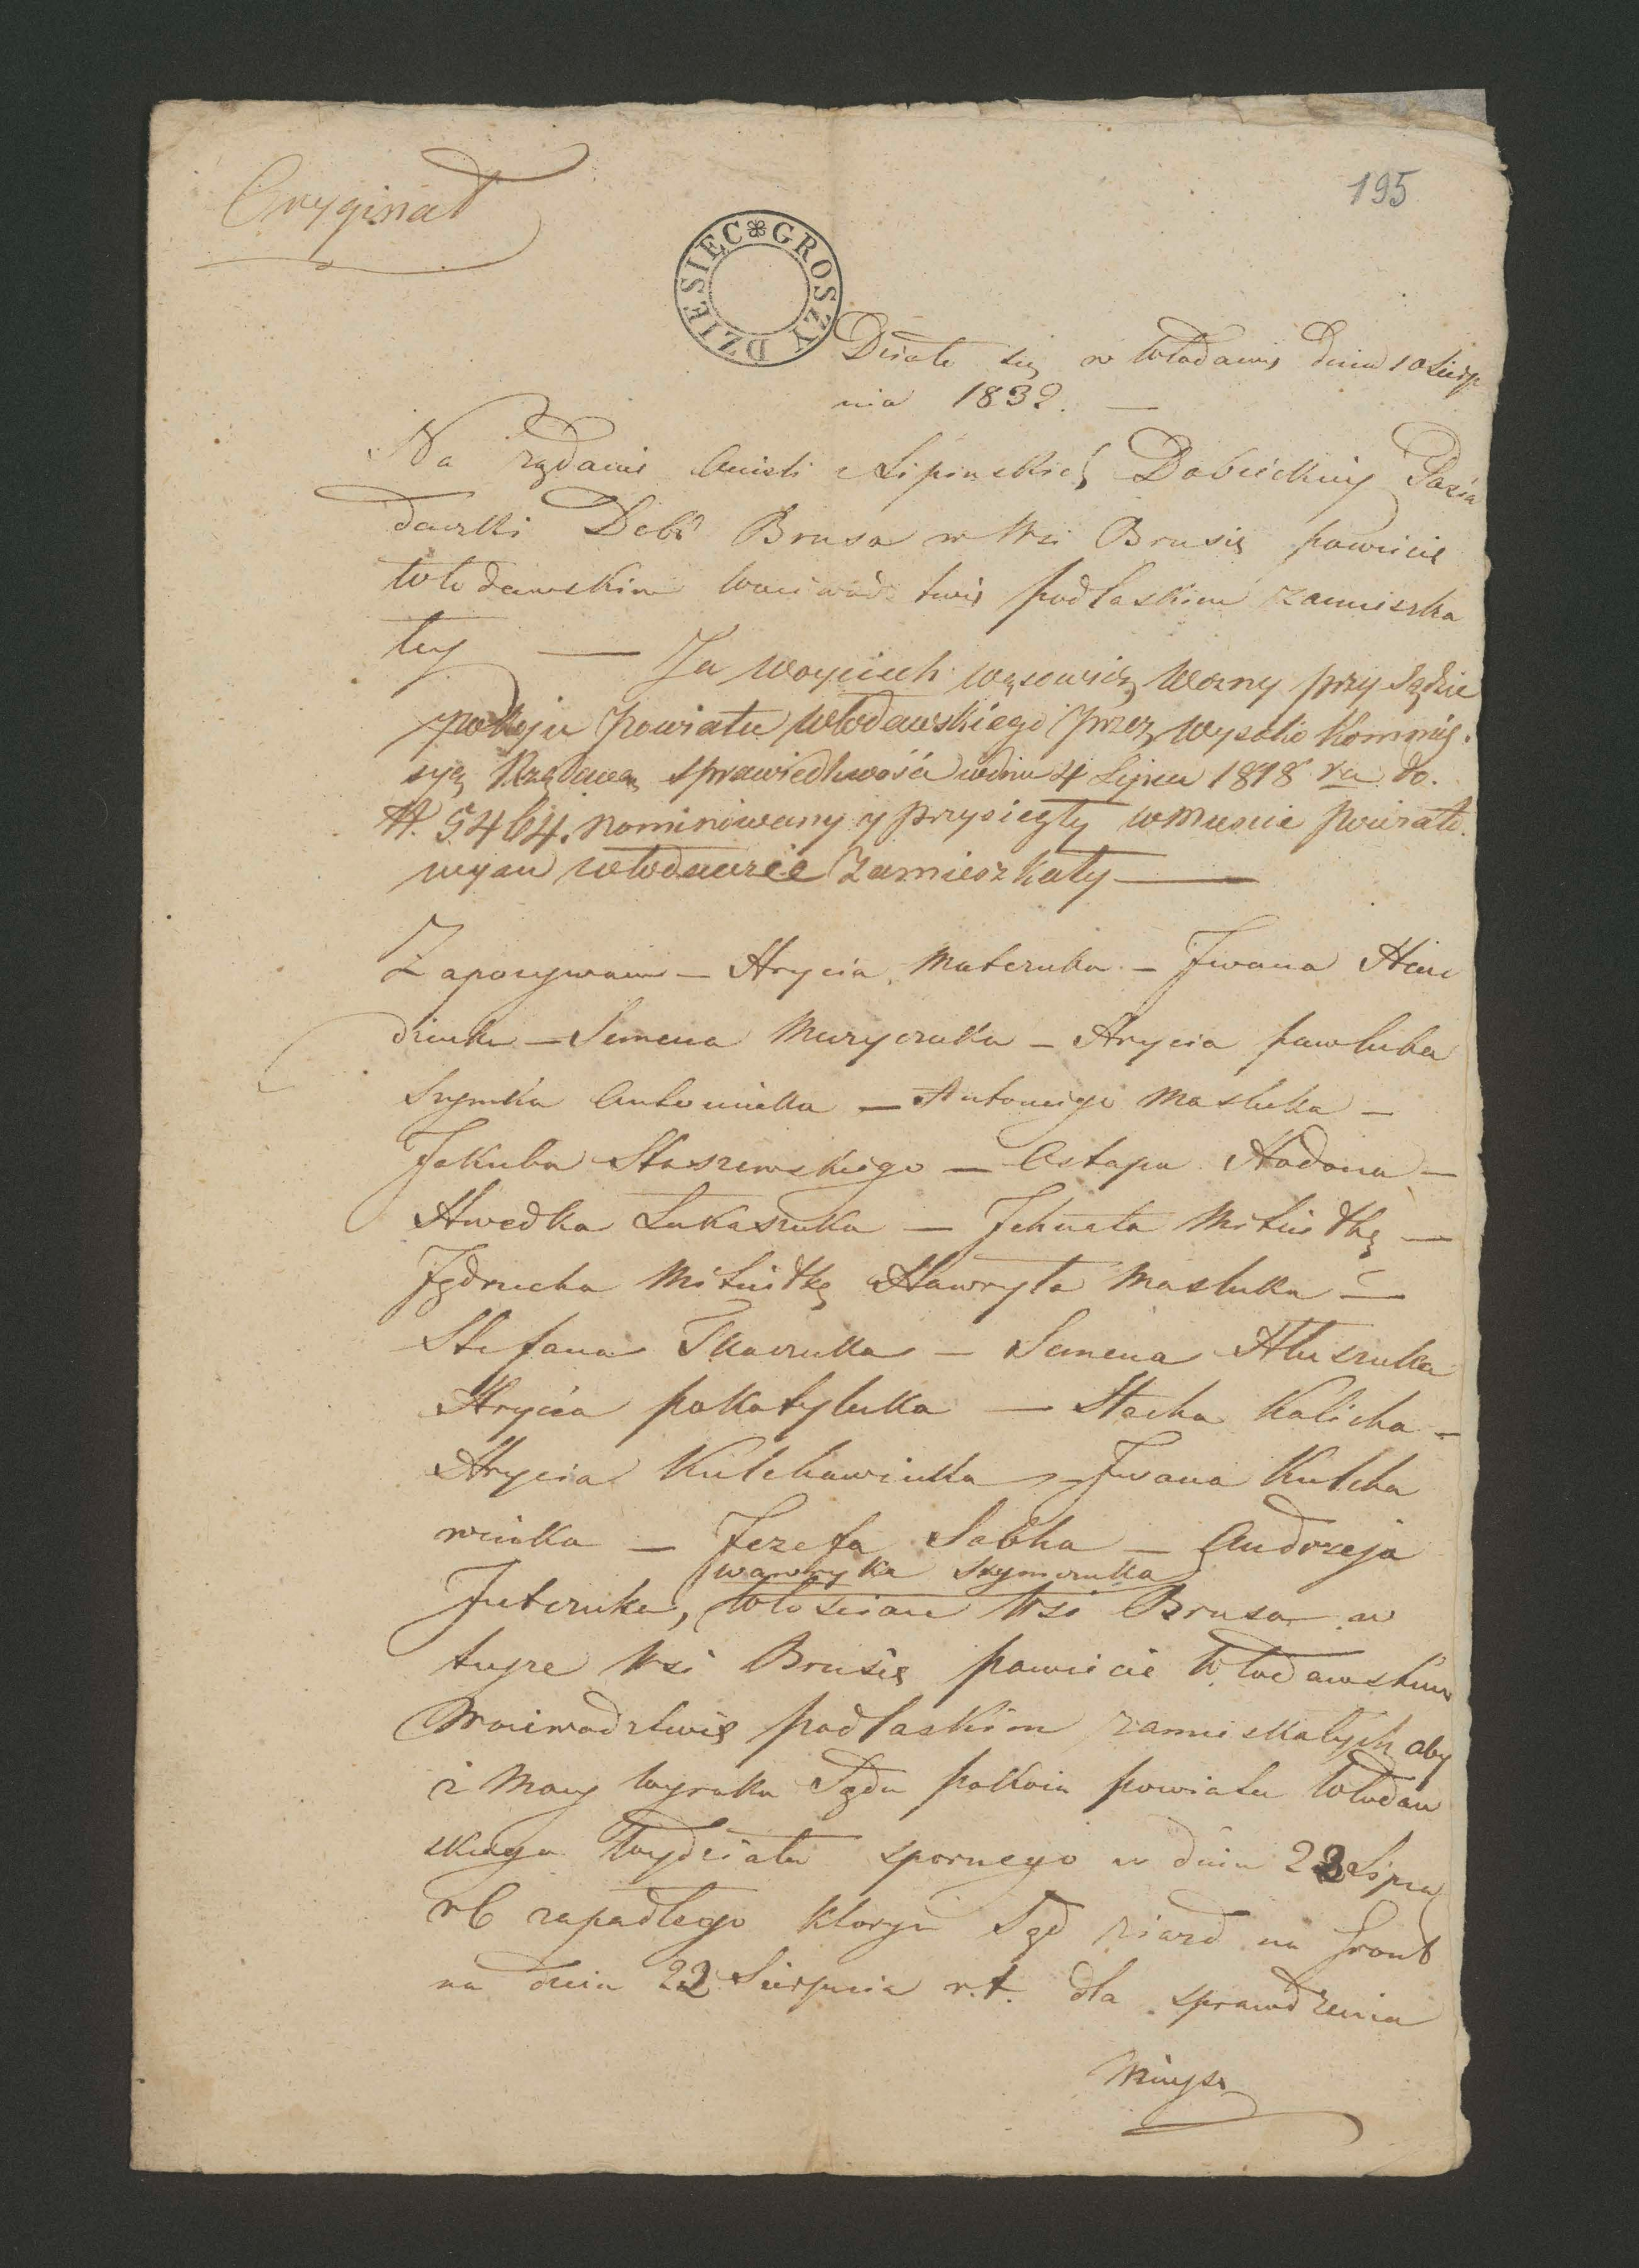 Oryginał
195
DZIESIĘC GROSZY
Działo się w Włodawie dnia 10 Sierp
nia 1832. —
Na żądanie Anieli z Lipinskich Dobieckiey Posia
daczki Dobr Brusa w Wsi Brusie powiecie
Włodawskim Woiewodztwie podlaskim zamieszka
łey — Ja Woyciech Wąsowicz Wozny przy Sądzie
pokoju powiatu Włodawskiego przez Wysoko Kommis
syą Rządową sprawiedliwości w dniu 4 Lipca 1818 ru do.
N. 5464. nominowany y przysięgły w miescie powiato
wym Włodawie Zamieszkały —
Zapozywam — Hrycia Materuka — Iwana Hin
dziuka — Semena Muryczuka — Hrycia pawluka
Szymka Antoniuka — Antoniego Masluka —
Jakuba Staszewskiego — Ostapa Hodona —
Hwedka Lukaszuka — Ichnata Mitiułkę —
Jędrucha Mitiułkę Hawryła Masluka —
Stefana Tkaczuka — Semena Hluszuka
Hrycia pokatyluka — Stacha Kalicha —
Hrycia Kulchawiuka — Iwana Kulcha
wiuka — Jozefa Sabka — Andrzeja
wawryka Szymczuka
Juteruka, włoscian Wsi Brusa w
teyze Wsi Brusie powiecie Włodawskim
Woiewodztwie podlaskim zamieskałych aby
z Mocy wyroku Sądu pokoiu powiatu Włodaw
skiego Wydziału spornego w dniu 23 Lipca
rb zapadłego ktorym Sąd ziazd na Grunt
na dnia 22 Sierpnia r.t. dla sprawdzenia